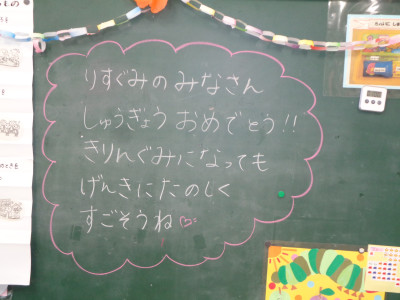 りすぐみのみなさん
しゅうぎょうおめでとう!!
きりんぐみになっても
げんきにたのしく
すごそうね♡